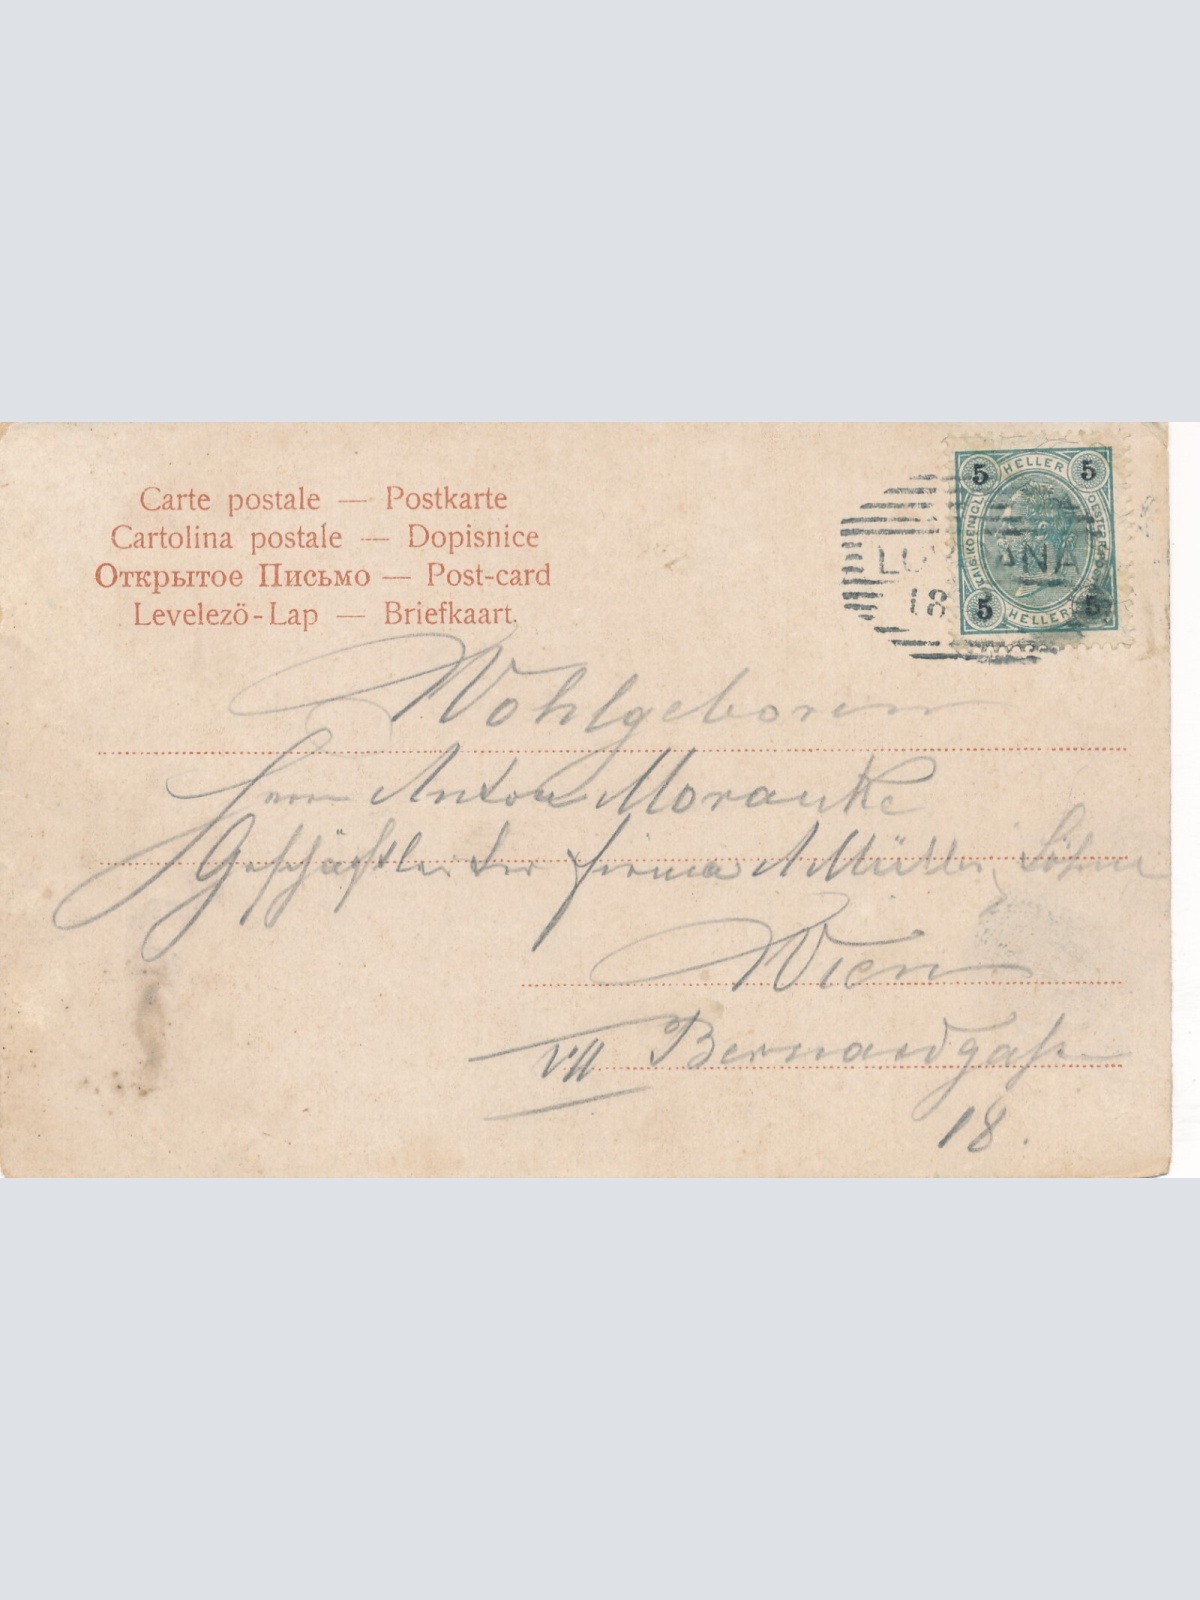 Carte postale — Postkarte
Cartolina postale — Dopisnice
Открытое Письмо — Post-card
Levelezö-Lap — Briefkaart.
5 HELLER 5
KAIS. KOENIGL. OESTERR.
5 HELLER 5
LU ANA
18
Wohlgeboren
Herrn Anton Morauke
Geschäftsleiter der Firma A Müller Söhne
Wien
VII Bernardgasse
18.